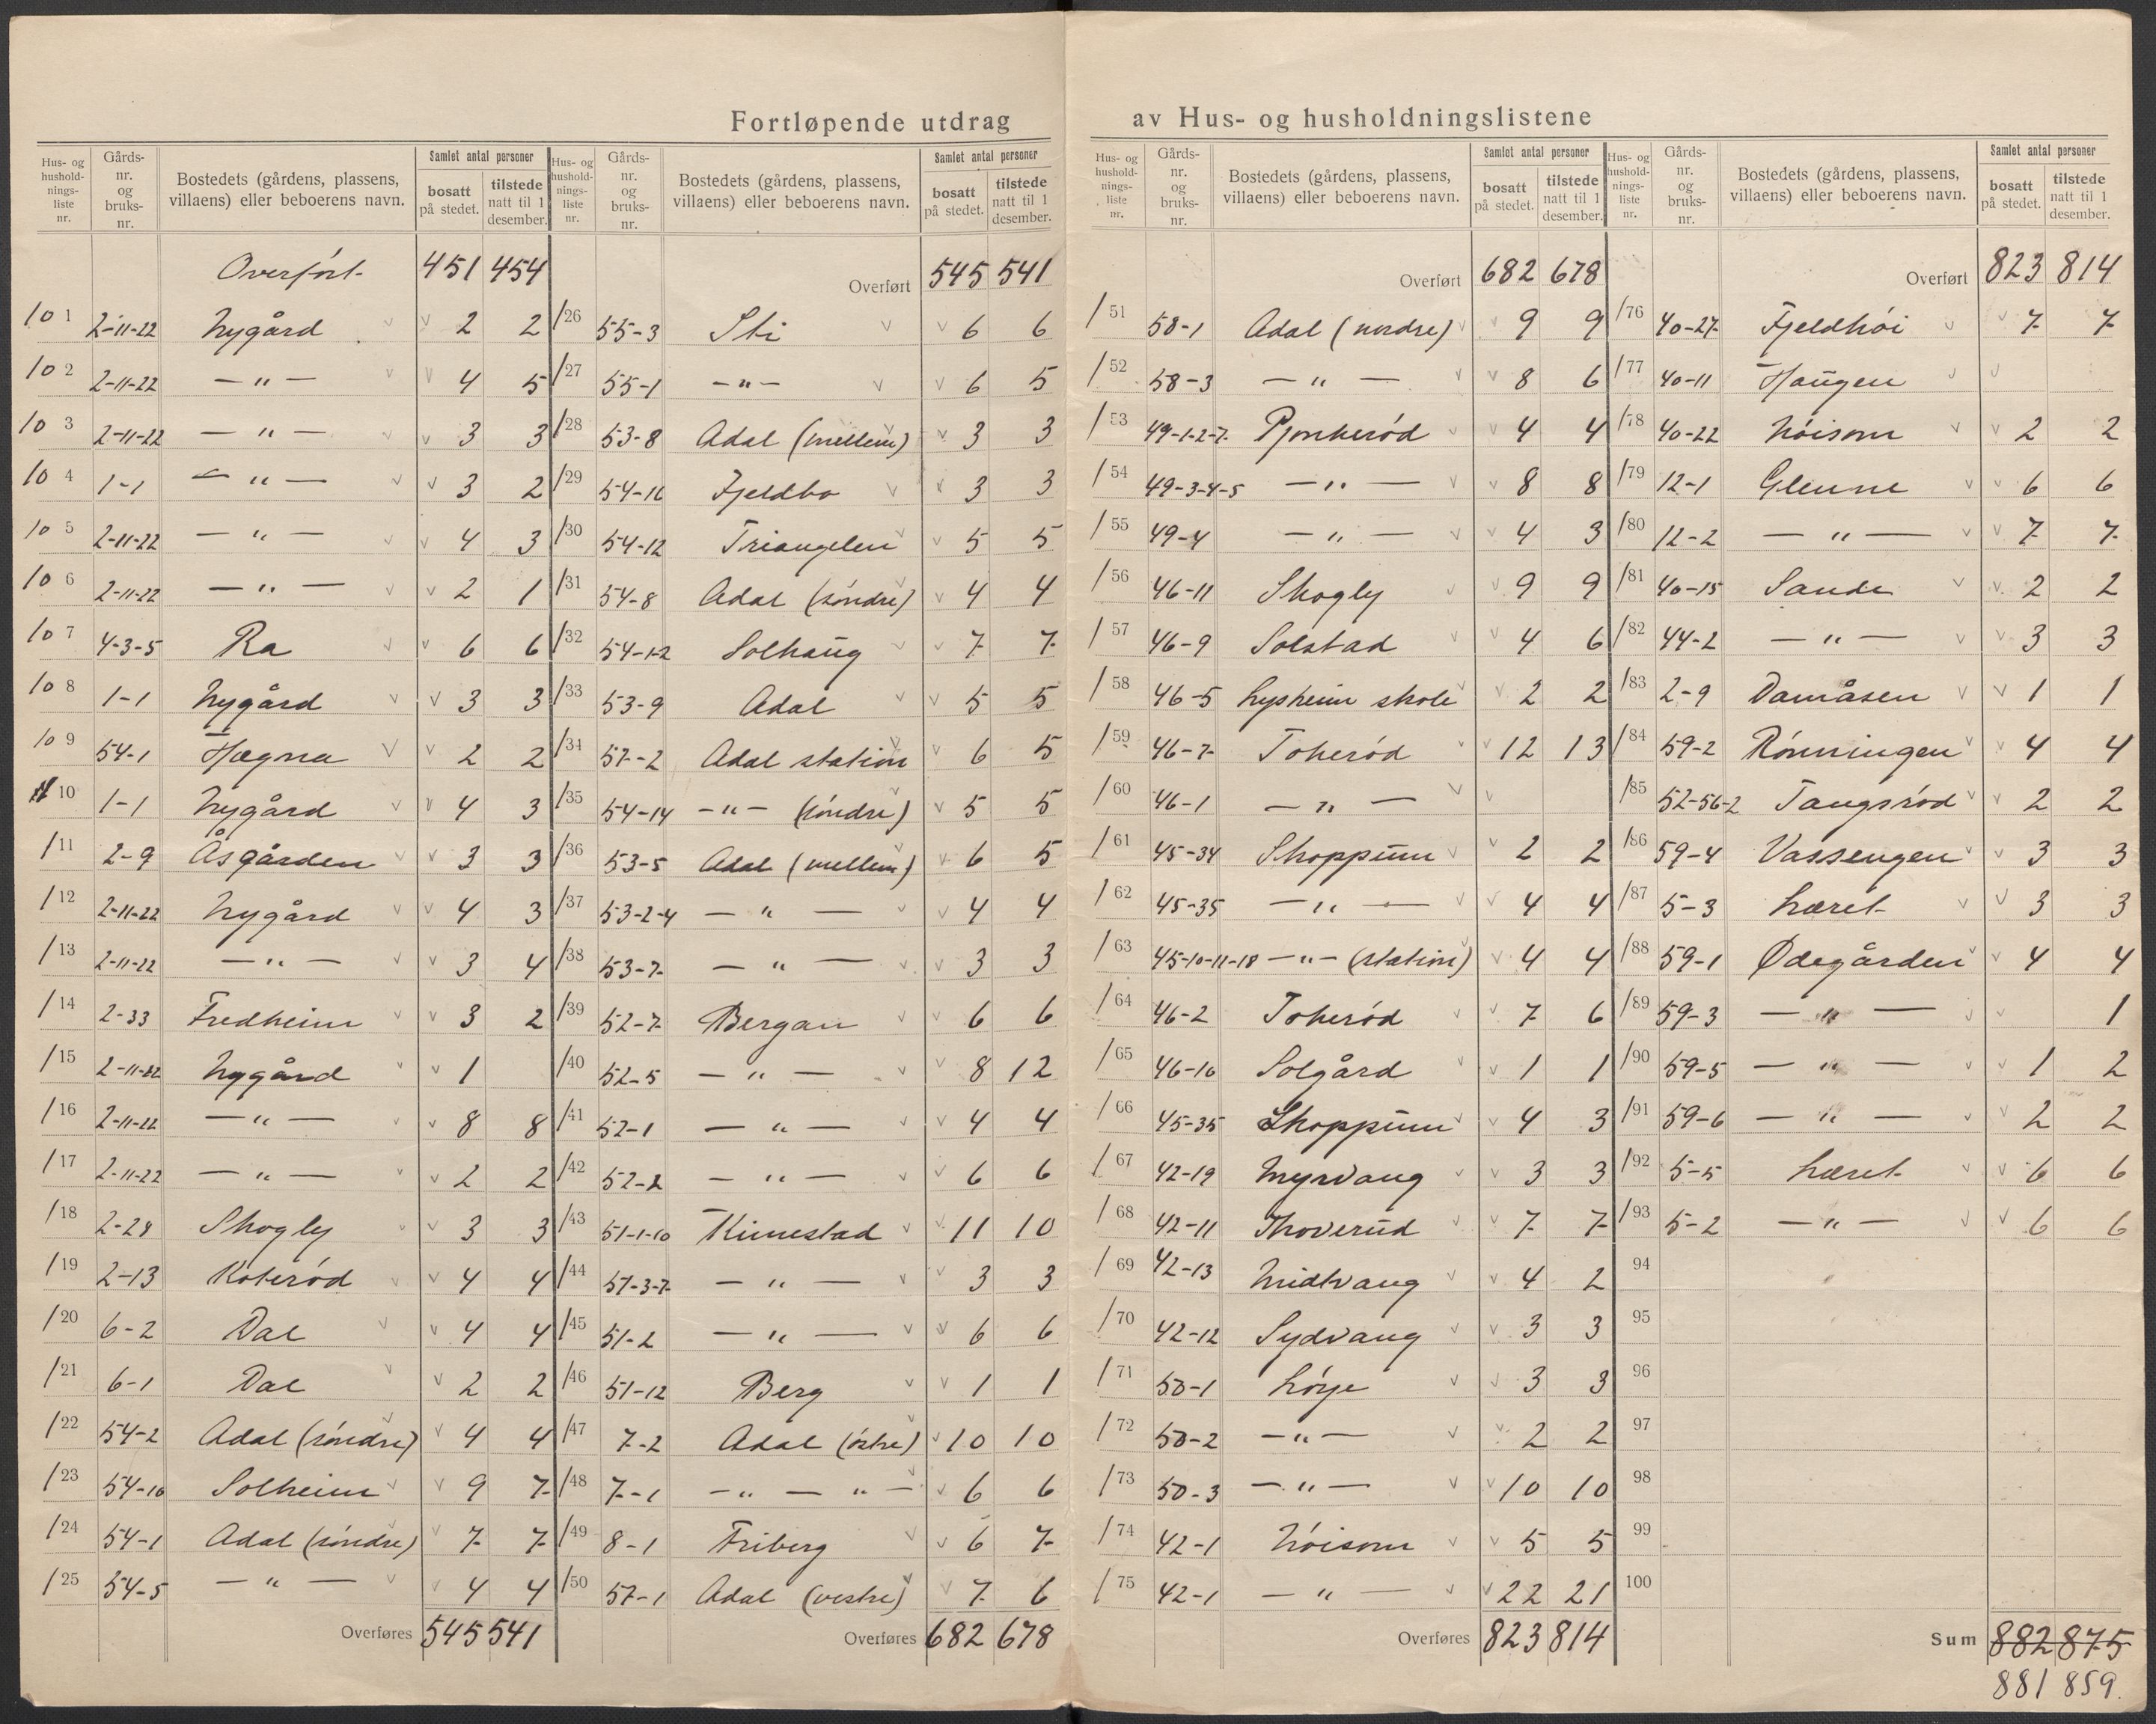 Fortløpende utdrag av Hus- og husholdningslistene
Hus- og hushold-nings-liste nr. | Gårds-nr. og bruks-nr. | Bostedets (gårdens, plassens, villaens) eller beboerens navn. | Samlet antal personer | bosatt på stedet. | tilstede natt til 1 desember.
Overført 451 454
101 2-11-22 Nygård 2 2
102 2-11-22 — " — 4 5
103 2-11-22 — " — 3 3
104 1-1 — " — 3 2
105 2-11-22 — " — 4 3
106 2-11-22 — " — 2 1
107 4-3-5 Ra 6 6
108 1-1 Nygård 3 3
109 54-1 Hægna 2 2
110 1-1 Nygård 4 3
111 2-9 Åsgården 3 3
112 2-11-22 Nygård 4 3
113 2-11-22 — " — 3 4
114 2-33 Fredheim 3 2
115 2-11-22 Nygård 1
116 2-11-22 — " — 8 8
117 2-11-22 — " — 2 2
118 2-28 Skogly 3 3
119 2-13 Roterød 4 4
120 6-2 Dal 4 4
121 6-1 Dal 2 2
122 54-2 Adal (søndre) 4 4
123 54-10 Solheim 9 7
124 54-1 Adal (søndre) 7 7
125 54-5 — " — 4 4
Overføres 545 541
Hus- og hushold-nings-liste nr. | Gårds-nr. og bruks-nr. | Bostedets (gårdens, plassens, villaens) eller beboerens navn. | Samlet antal personer | bosatt på stedet. | tilstede natt til 1 desember.
Overført 545 541
126 55-3 Sti 6 6
127 55-1 — " — 6 5
128 53-8 Adal (mellem) 3 3
129 54-16 Fjeldbo 3 3
130 54-12 Triangelen 5 5
131 54-8 Adal (søndre) 4 4
132 54-12 Solhaug 7 7
133 53-9 Adal 5 5
134 57-2 Adal station 6 5
135 54-14 — " — (søndre) 5 5
136 53-5 Adal (mellem) 6 5
137 53-2-4 — " — 4 4
138 53-7 — " — 3 3
139 52-7 Bergan 6 6
140 52-5 — " — 8 12
141 52-1 — " — 4 4
142 52-2 — " — 6 6
143 51-1-10 Kimestad 11 10
144 51-3-7 — " — 3 3
145 51-2 — " — 6 6
146 51-12 Berg 1 1
147 7-2 Adal (østre) 10 10
148 7-1 — " — " — 6 6
149 8-1 Friberg 6 7
150 57-1 Adal (vestre) 7 6
Overføres 682 678
Hus- og hushold-nings-liste nr. | Gårds-nr. og bruks-nr. | Bostedets (gårdens, plassens, villaens) eller beboerens navn. | Samlet antal personer | bosatt på stedet. | tilstede natt til 1 desember.
Overført 682 678
151 58-1 Adal (nordre) 9 9
152 58-3 — " — 8 6
153 49-1-2-7 Pjonkerød 4 4
154 49-3-4-5 — " — 8 8
155 49-4 — " — 4 3
156 46-11 Skogly 9 9
157 46-9 Solstad 4 6
158 46-5 Lysheim skole 2 2
159 46-7 Tokerød 12 13
160 46-1 — " —
161 45-34 Skoppum 2 2
162 45-35 — " — 4 4
163 45-10-11-18 — " — (station) 4 4
164 46-2 Tokerød 7 6
165 46-16 Solgård 1 1
166 45-35 Skoppum 4 3
167 42-19 Myrvang 3 3
168 42-11 Thoverud 7 7
169 42-13 Midtvang 4 2
170 42-12 Sydvang 3 3
171 50-1 Løye 3 3
172 50-2 — " — 2 2
173 50-3 — " — 10 10
174 42-1 Nøisom 5 5
175 42-1 — " — 22 21
Overføres 823 814
Hus- og hushold-nings-liste nr. | Gårds-nr. og bruks-nr. | Bostedets (gårdens, plassens, villaens) eller beboerens navn. | Samlet antal personer | bosatt på stedet. | tilstede natt til 1 desember.
Overført 823 814
176 40-27 Fjeldhøi 7 7
177 40-11 Haugen
178 40-22 Nøisom 2 2
179 12-1 Glenne 6 6
180 12-2 — " — 7 7
181 40-15 Sande 2 2
182 44-2 — " — 3 3
183 2-9 Damåsen 1 1
184 59-2 Rønningen 4 4
185 52-56-2 Tangsrød 2 2
186 59-4 Vassengen 3 3
187 5-3 Læret 3 3
188 59-1 Ødegården 4 4
189 59-3 — " — 1
190 59-5 — " — 1 2
191 59-6 — " — 2 2
192 5-5 Læret 6 6
193 5-2 — " — 6 6
94
95
96
97
98
99
100
Sum 882 875
881 859